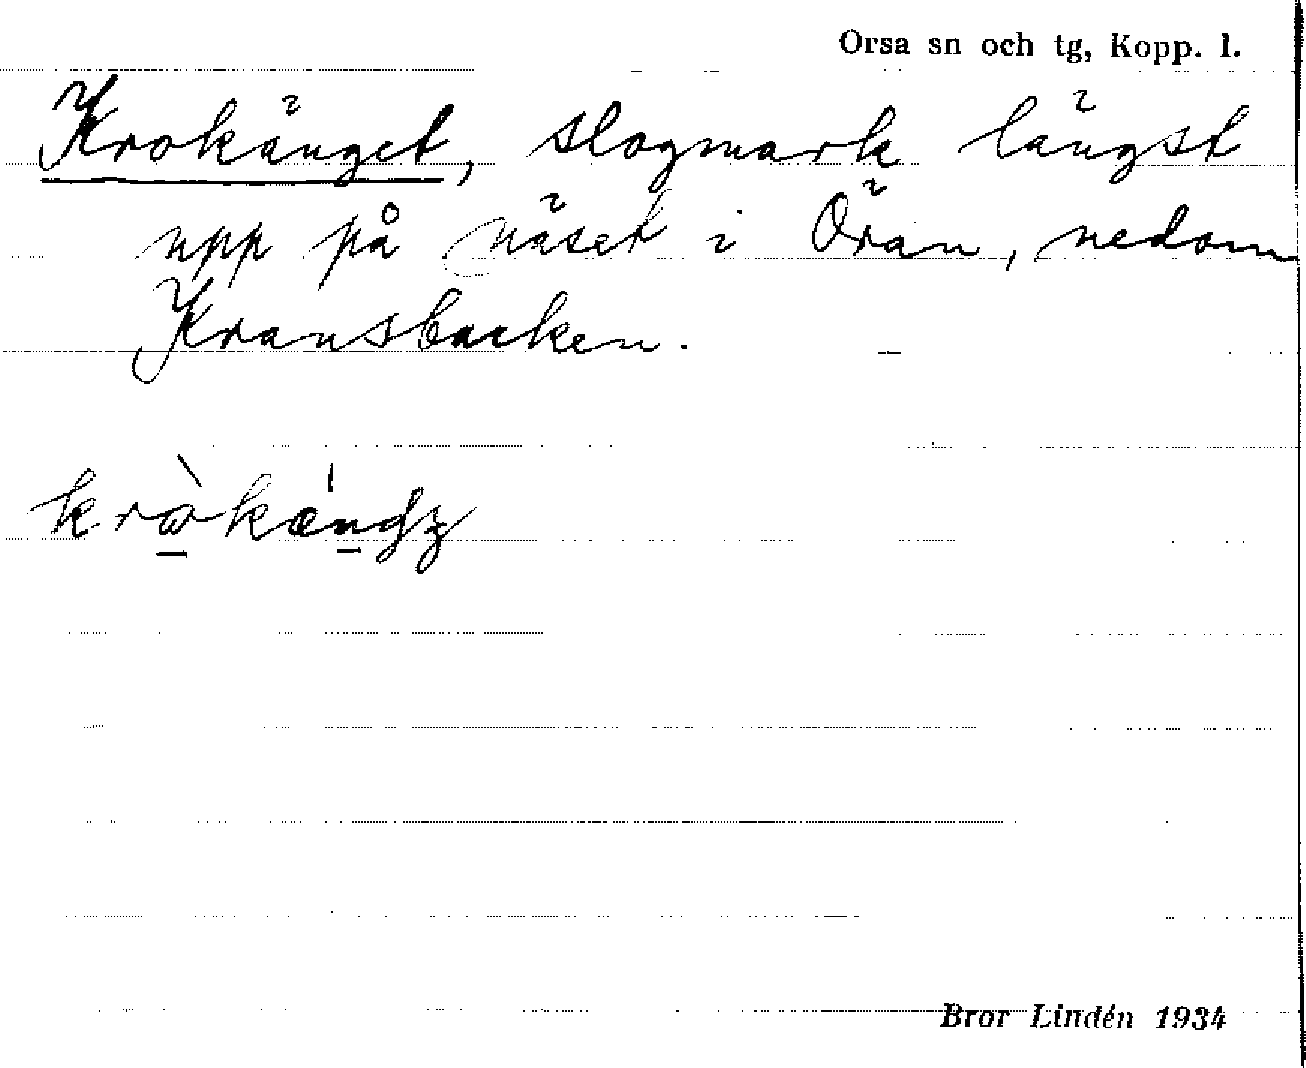 Orsa sn och tg, Kopp. l.
Krokänget, slogmark längst
upp på näset i Örän, nedom
Kransbacken.
Bror Lindén 1934